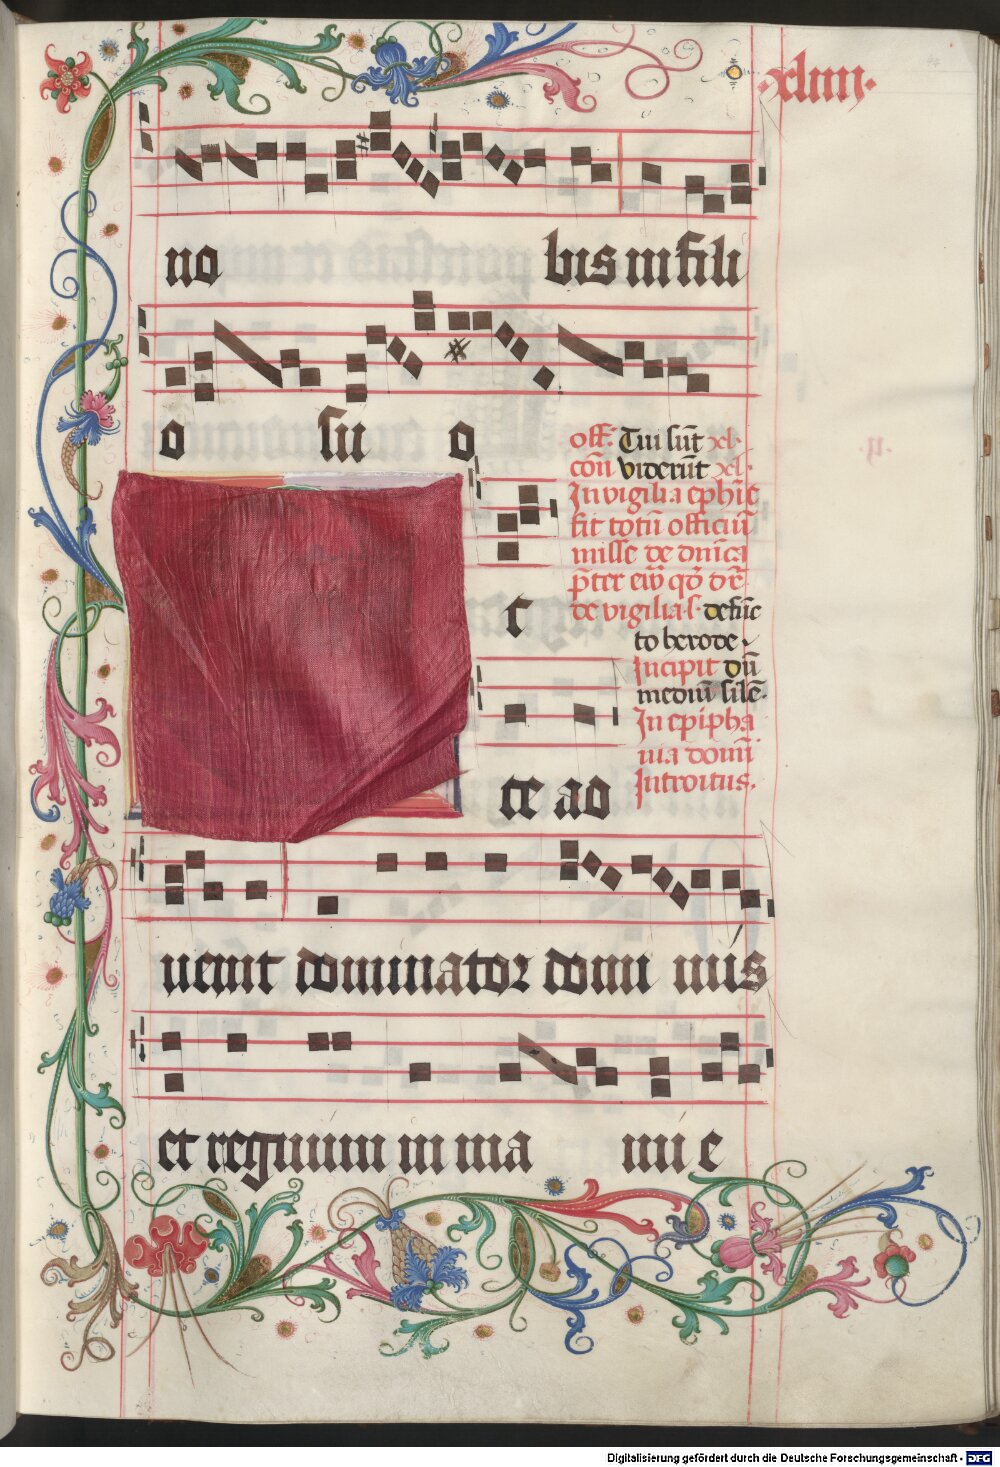 ·xliiii·
no bis in fili
o su o
off. Tui sūt xl·
cōn viderūt xl·
In vigilia epħīe
fit totū officiū
misse de dn̄ica
p̄ter ew̄ qd̄ dr̄
de vigilia s· defūc
to herode·
Incipit dū
mediū silē·
In epipha
nia domī
Introitus.
c
ce ad
uenit dominator domi nus
et regnum in ma nu e
Digitalisierung gefördert durch die Deutsche Forschungsgemeinschaft - DFG